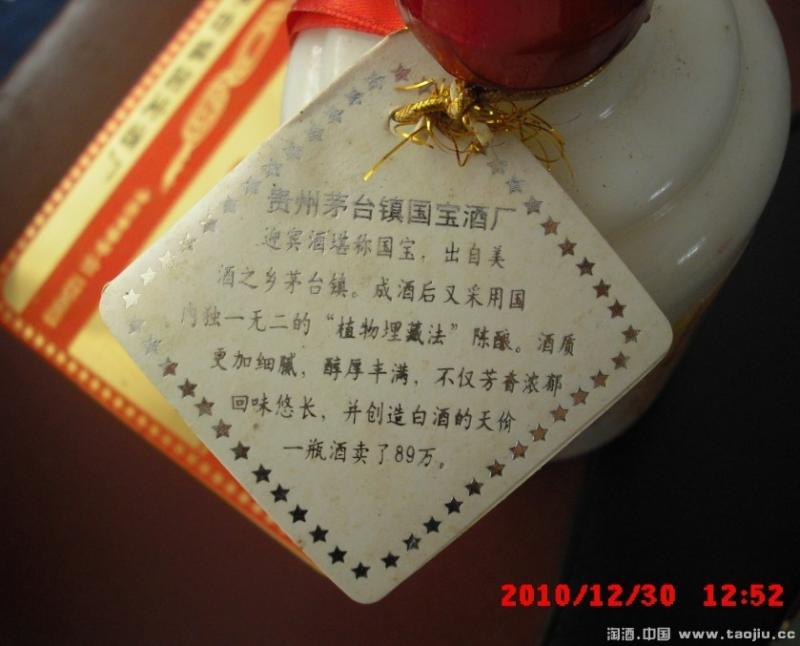 贵州茅台镇国宝酒厂
迎宾酒堪称国宝，出自美
酒之乡茅台镇。成酒后又采用国
内独一无二的“植物埋藏法”陈酿。酒质
更加细腻，醇厚丰满，不仅芳香浓郁
回味悠长，并创造白酒的天价
一瓶酒卖了89万。
2010/12/30 12:52
淘酒.中国 www.taojiu.cc